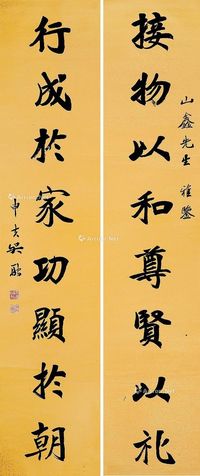 接物以和尊賢以礼
山鑫先生雅鑒
行成於家功顯於朝
申夫吳